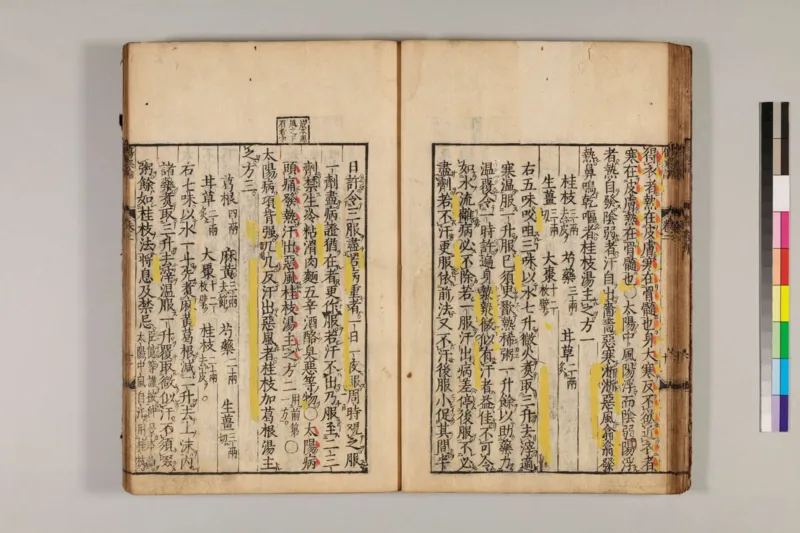 得衣者熱在皮膚寒在骨髓也身大寒反不欲近衣者
寒在皮膚熱在骨髓也〇太陽中風陽浮而陰弱陽浮
者熱自發陰弱者汗自出嗇嗇惡寒淅淅惡風翕翕發
熱鼻鳴乾嘔者桂枝湯主之方一
桂枝三兩去皮 芍藥三兩 甘草二兩炙
生薑三兩切 大棗十二枚擘
右五味㕮咀三味以水七升微火煑取三升去滓適
寒温服一升服已須臾歠熱稀粥一升餘以助藥力
温覆令一時許遍身漐漐微似有汗者益佳不可令
如水流離病必不除若一服汗出病差停後服不必
盡劑若不汗更服依前法又不汗後服小促其間半
日許令三服盡若病重者一日一夜服周時觀之服
一劑盡病證猶在者更作服若汗不出乃服至二三
劑禁生冷粘滑肉麵五辛酒酪臭惡等物〇太陽病
頭痛發熱汗出惡風桂枝湯主之方二用前第一方。〇
太陽病項背强几几反汗出惡風者桂枝加葛根湯主
之方三
葛根四兩 麻黄三兩去節 芍藥二兩 生薑三兩切
甘草二兩炙 大棗十二枚擘 桂枝二兩去皮
右七味以水一斗先煑麻黄葛根減二升去上沫内
諸藥煑取三升去滓温服一升覆取微似汗不須啜
粥餘如桂枝法將息及禁忌